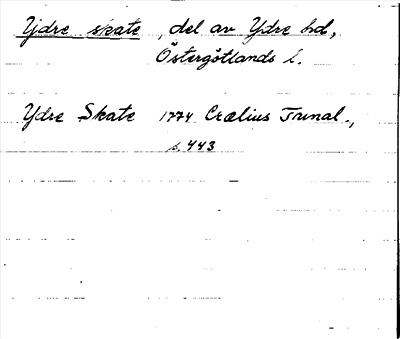 Ydre skate, del av Ydre hd,
Östergötlands l.
Ydre Skate 1774 Crælius Trunal.,
s. 443